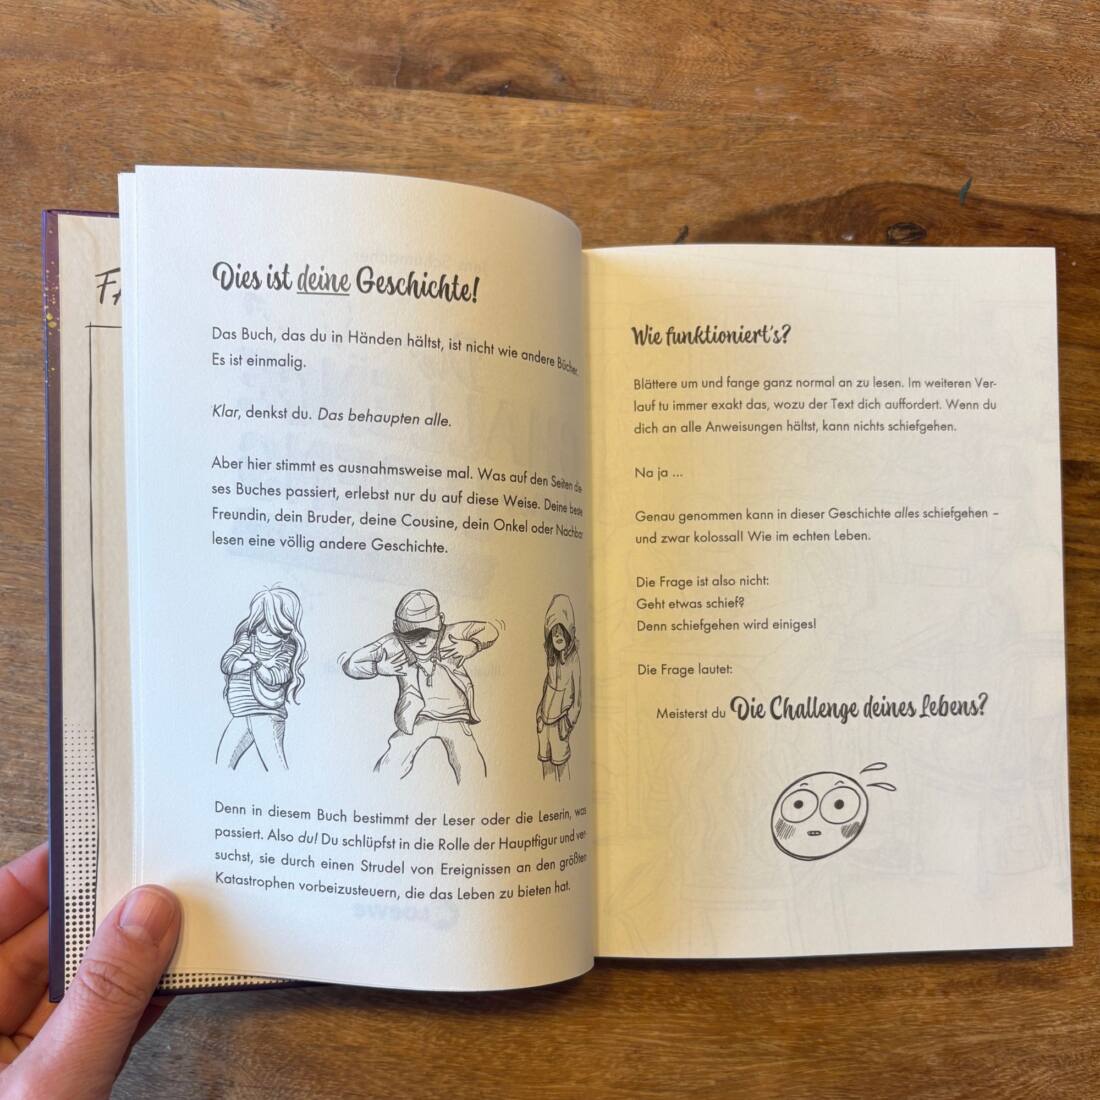 FA
Dies ist deine Geschichte!
Das Buch, das du in Händen hältst, ist nicht wie andere Bücher.
Es ist einmalig.
Klar, denkst du. Das behaupten alle.
Aber hier stimmt es ausnahmsweise mal. Was auf den Seiten die
ses Buches passiert, erlebst nur du auf diese Weise. Deine beste
Freundin, dein Bruder, deine Cousine, dein Onkel oder Nachbar
lesen eine völlig andere Geschichte.
Denn in diesem Buch bestimmt der Leser oder die Leserin, was
passiert. Also du! Du schlüpfst in die Rolle der Hauptfigur und ver-
suchst, sie durch einen Strudel von Ereignissen an den größten
Katastrophen vorbeizusteuern, die das Leben zu bieten hat.
Wie funktioniert's?
Blättere um und fange ganz normal an zu lesen. Im weiteren Ver-
lauf tu immer exakt das, wozu der Text dich auffordert. Wenn du
dich an alle Anweisungen hältst, kann nichts schiefgehen.
Na ja ...
Genau genommen kann in dieser Geschichte alles schiefgehen –
und zwar kolossal! Wie im echten Leben.
Die Frage ist also nicht:
Geht etwas schief?
Denn schiefgehen wird einiges!
Die Frage lautet:
Meisterst du Die Challenge deines Lebens?